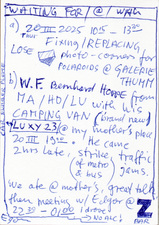 WAITING FOR/@/WAH
a) 20 III 2025 10¹⁵ – 13⁰⁰
Fixing/REPLACING
LOSE photo-corners for
POLAROIDS @ GALERIE
THUMM
b) W.F. Bernhard HOPPE from
MA/HD/LU with his
CAMPING VAN (brand new)
LUXY 23 @ my mother's place
20 III 19⁰⁰ • He came
2hrs late, strike, traffic
of Metro & jams.
bus
we ate @ mother's, great talk,
then meeting w/ Edgar @
22³⁰ – 01⁰⁰ idrove
Z
BAR